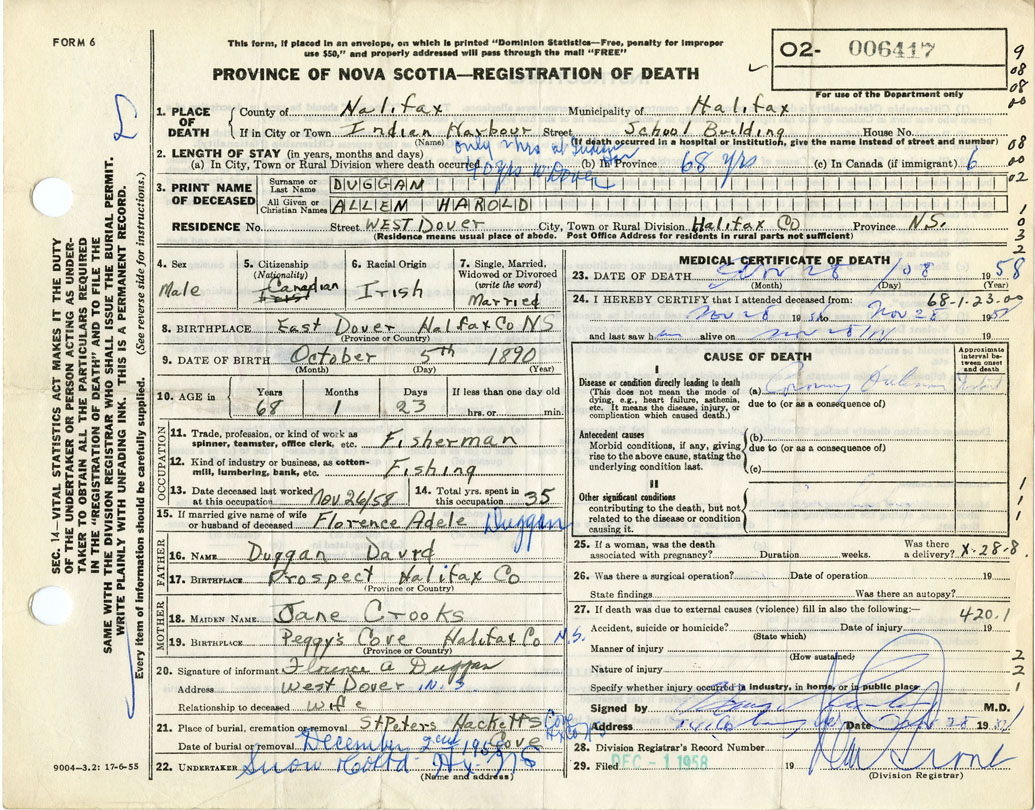 FORM 6
This form, if placed in an envelope, on which is printed "Dominion Statistics—Free, penalty for improper
use $50," and properly addressed will pass through the mail "FREE"
PROVINCE OF NOVA SCOTIA—REGISTRATION OF DEATH
O2- 006417
For use of the Department only
9
08
08
00
08
00
02
1
0
3
2
SEC. 14—VITAL STATISTICS ACT MAKES IT THE DUTY
OF THE UNDERTAKER OR PERSON ACTING AS UNDER-
TAKER TO OBTAIN ALL THE PARTICULARS REQUIRED
IN THE "REGISTRATION OF DEATH" AND TO FILE THE
SAME WITH THE DIVISION REGISTRAR WHO SHALL ISSUE THE BURIAL PERMIT.
WRITE PLAINLY WITH UNFADING INK. THIS IS A PERMANENT RECORD.
Every item of information should be carefully supplied. (See reverse side for instructions.)
1. PLACE OF DEATH
County of Halifax Municipality of Halifax
If in City or Town Indian Harbour Street School Building House No.
(Name) (If death occurred in a hospital or institution, give the name instead of street and number)
2. LENGTH OF STAY (in years, months and days) only 2 hrs at Indian Har
(a) In City, Town or Rural Division where death occurred 40 yrs W Dover (b) In Province 68 yrs (c) In Canada (if immigrant) 6
3. PRINT NAME OF DECEASED
Surname or Last Name DUGGAN
All Given or Christian Names ALLEM HAROLD
RESIDENCE No. Street WEST Dover City, Town or Rural Division Halifax Co Province N.S.
(Residence means usual place of abode. Post Office Address for residents in rural parts not sufficient)
4. Sex
Male
5. Citizenship
(Nationality)
Canadian
Irish
6. Racial Origin
Irish
7. Single, Married,
Widowed or Divorced
(write the word)
Married
8. BIRTHPLACE East Dover Halifax Co NS
(Province or Country)
9. DATE OF BIRTH October 5th 1890
(Month) (Day) (Year)
10. AGE in
Years Months Days If less than one day old
68 1 23 hrs. or min.
OCCUPATION
11. Trade, profession, or kind of work as
spinner, teamster, office clerk, etc. Fisherman
12. Kind of industry or business, as cotton-
mill, lumbering, bank, etc. Fishing
13. Date deceased last worked
at this occupation Nov 26/58
14. Total yrs. spent in
this occupation 35
15. If married give name of wife
or husband of deceased Florence Adele Duggan
FATHER
16. NAME Duggan David
17. BIRTHPLACE Prospect Halifax Co
(Province or Country)
MOTHER
18. MAIDEN NAME Jane Crooks
19. BIRTHPLACE Peggy's Cove Halifax Co N.S.
(Province or Country)
20. Signature of informant Florence A Duggan
Address West Dover N.S.
Relationship to deceased wife
21. Place of burial, cremation or removal St Peters Hacketts Cove
Cove Hx Co
Date of burial or removal December 2nd 1958
22. UNDERTAKER Snow
(Name and address)
9004—3.2: 17-6-55
MEDICAL CERTIFICATE OF DEATH
23. DATE OF DEATH Nov 28 1958
(Month) (Day) (Year)
24. I HEREBY CERTIFY that I attended deceased from: 68-1-23-00
Nov 28 19 58 to Nov 28 19 58
and last saw him alive on Nov 28
CAUSE OF DEATH
Approximate interval between onset and death
I
Disease or condition directly leading to death
(This does not mean the mode of
dying, e.g., heart failure, asthenia,
etc. It means the disease, injury, or
complication which caused death.)
(a) Coronary Occlusion
due to (or as a consequence of)
Antecedent causes
Morbid conditions, if any, giving
rise to the above cause, stating the
underlying condition last.
(b)
due to (or as a consequence of)
(c)
II
Other significant conditions
contributing to the death, but not
related to the disease or condition
causing it.
1
1
1
25. If a woman, was the death
associated with pregnancy? Duration weeks. Was there
a delivery? X-28-8
26. Was there a surgical operation? Date of operation 19
State findings Was there an autopsy?
27. If death was due to external causes (violence) fill in also the following:—
420.1
Accident, suicide or homicide? Date of injury 19
(State which)
Manner of injury
(How sustained)
Nature of injury
Specify whether injury occurred in industry, in home, or in public place
2
2
1
1
Signed by M.D.
Address Date Nov 28 19
28. Division Registrar's Record Number
29. Filed DEC - 1 1958 19
(Division Registrar)